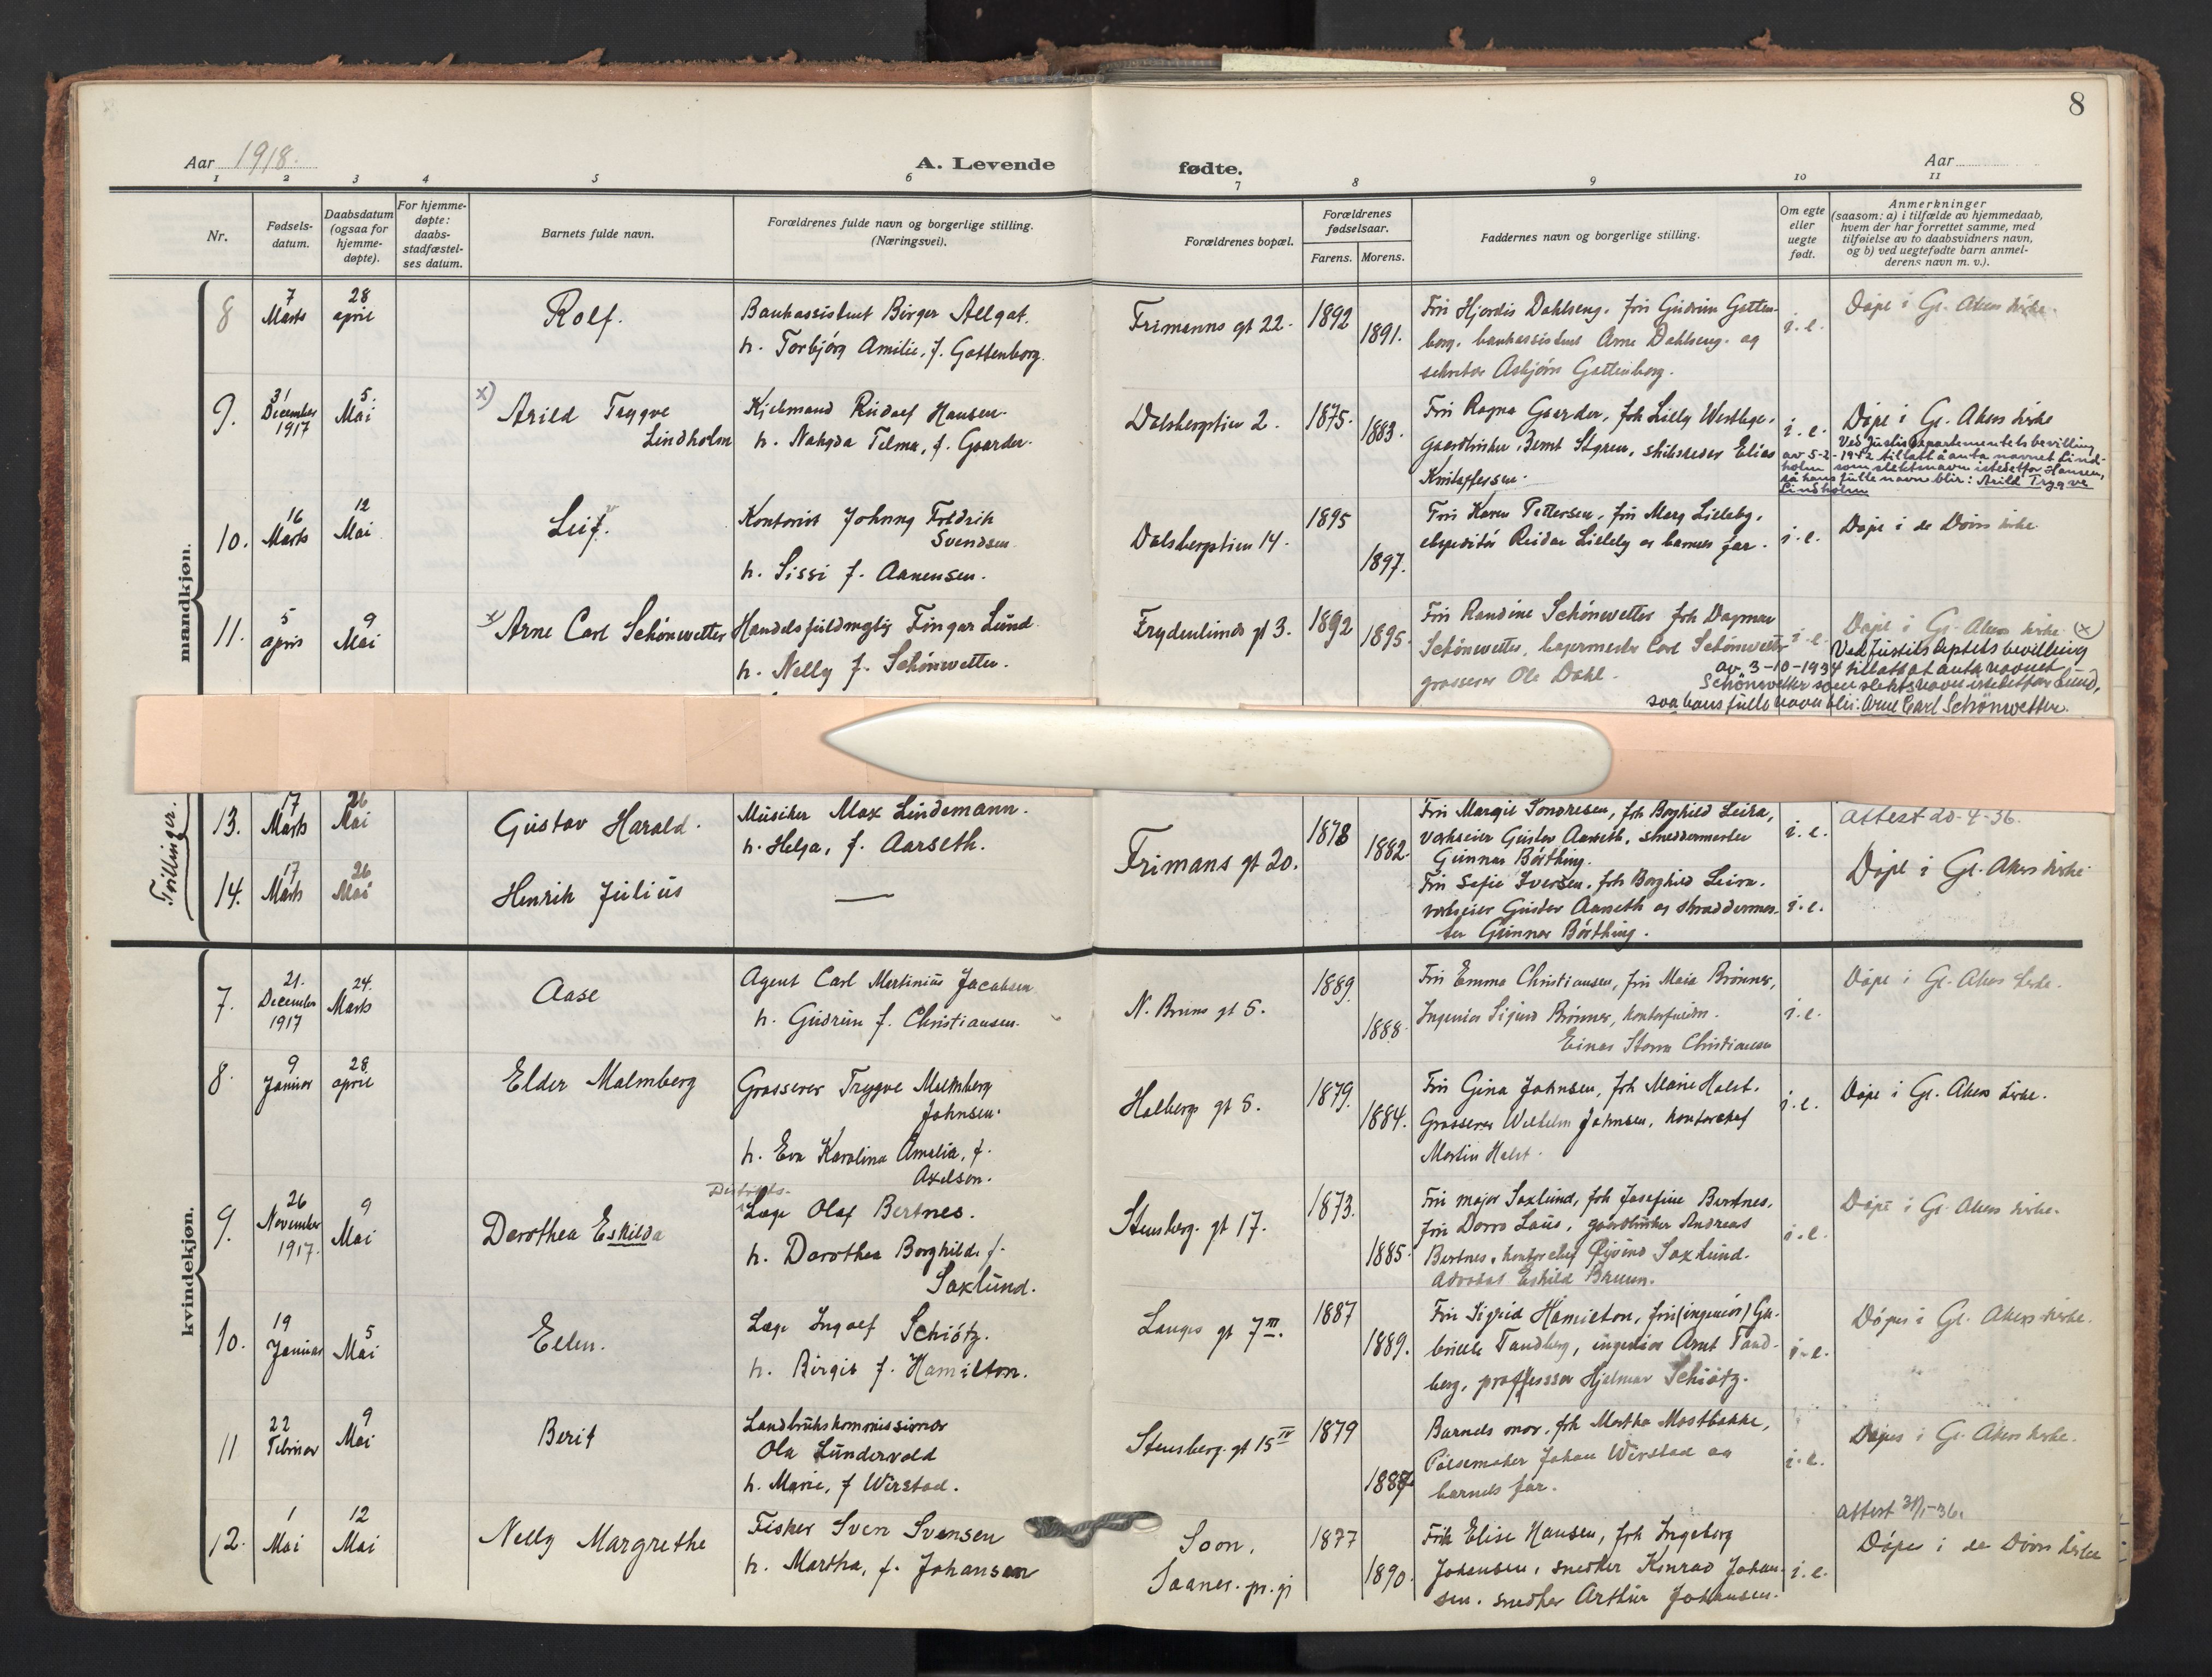 8
Aar 1918.
A. Levende
fødte.
Aar
1 2 3 4 5 6 7 8 9 10 11
Nr.
Fødsels-
datum.
Daabsdatum
(ogsaa for
hjemme-
døpte).
For hjemme-
døpte:
daabs-
stadfæstel-
ses datum.
Barnets fulde navn.
Forældrenes fulde navn og borgerlige stilling.
(Næringsvei).
Forældrenes bopæl.
Forældrenes
fødselsaar.
Farens. Morens.
Faddernes navn og borgerlige stilling.
Om egte
eller
uegte
født.
Anmerkninger
(saasom: a) i tilfælde av hjemmedaab,
hvem der har forrettet samme, med
tilføielse av to daabsvidners navn,
og b) ved uegtefødte barn anmel-
derens navn m. v.).
mandkjøn.
8
7
Marts
28
april
Rolf.
Bankassistent Birger
h. Torbjörg Amilie, f. Gottenborg.
Frimanns gt 22.
1892
1891.
Fru Hjordis Dahlseng. fru Gudrun Gotten-
borg. bankassistent Arne Dahlseng. og
Asbjörn Gottenborg.
i. e.
Döpt i Gl. Akers kirke.
9.
31
December
1917
5.
Mai
x)
Arild Trygve
Lindholm
Kjelmand Rudolf Hansen.
h. Telma, f. Gaarder.
Dalsbergstien 2.
1875.
1883.
Fru Ragna Gaarder, frk Lilly
Elias
i. e.
Döpt i Gl. Akers kirke
Ved Justisdepartementets bevilling
av 5-2-1942 tillatt å anta navnet Lind-
holm som slektsnavn istedetfor Hansen,
så hans fulle navn blir: Arild Trygve
Lindholm
10.
16
Marts
12
Mai
Leif.
Kontorist Johnny Fredrik
Svendsen
h. Sissi f. Aanensen.
Dalsbergstien 14.
1895
1897.
Fru Karen Pettersen, fru Mary Lilleby,
ekspeditör Reidar Lilleby og barnets far.
i. e.
Döpt i de Döves kirke
11.
5
april
9
Mai
x)
Arne Carl Schönwetter
Handelsfuldmegtig Fingar Lund
h. Nelly f. Schönwetter.
Frydenlunds gt 3.
1892
1895.
Fru Randine Schönwetter frk Dagmar
Schönwetter, Carl Schönwetter
grosserer Ole Dahl.
i. e.
Döpt i Gl. Akers kirke x)
Ved Justisdeptets bevilling
av 3-10-1934 tillatt at anta navnet
Schönwetter som slektsnavn istedetfor Lund,
saa hans fulle navn blir: Arne Carl Schönwetter.
Tvillinger.
13.
17
Marts
26
Mai
Gustav Harald.
Musiker Max Lindemann.
h. Helga, f. Aarseth.
Frimans gt 20.
1878
1882.
Fru Margit Sondresen, frk Borghild Leira,
verkseier Gustav Aarseth, skreddermester
Gunnar Börthing.
i. e.
attest 20-4-36.
14.
17
Marts
26
Mai
Henrik Julius
—
Fru Sofie Iversen. frk Borghild Leira.
verkseier Gustav Aarseth og skreddermes-
ter Gunnar Börthing.
i. e.
Döpt i Gl. Akers kirke
kvindekjøn.
7.
21.
December
1917
24.
Marts
Aase
Agent Carl Martinius Jacobsen
h. Gudrun f. Christiansen.
N. Bruns gt 5.
1889
1888.
Fru Emma Christiansen, fru Maia Brönner,
Ingeniör Sigurd Brönner,
Einar Storm Christiansen
i. e.
Döpt i Gl. Akers kirke.
8.
9
Januar
28
april
Elder Malmberg
Grosserer Trygve Malmberg
Johnsen.
h. Eva Karolina Amalia, f.
Axelson.
Holbergs gt 5.
1879.
1884.
Fru Gina Johnsen, frk Marie Holst.
Grosserer Wilhelm Johnsen, kontorchef
Martin Holst.
i. e.
Döpt i Gl. Akers kirke.
9.
26
November
1917.
9
Mai
Dorothea Eskilda
Distrikts-
Læge Olaf Bertnes.
h. Dorothea Borghild, f.
Saxlund.
Stensberg. gt 17.
1873.
1885.
Fru major Saxlund, frk Josefine Bertnes.
fru Dorro Laus, gaardbruker Andreas
Bertnes. kontorchef Öjvind Saxlund.
Advokat Eskild Bruun.
i. e.
Döpt i Gl. Akers kirke.
10.
19
Januar
5
Mai
Ellen.
Læge Ingolf Schiötz.
h. Birgit f. Hamilton.
Langes gt 7 III.
1887
1889.
Fru Sigrid Hamilton, fru (ingeniör) Ga-
brielle Tandberg, ingeniör Arnt Tand-
berg, proffessor Hjalmar Schiötz.
i. e.
Döpt i Gl. Akers kirke.
11
22
Februar
9
Mai
Berit
Landbrukskommissionær
Ola Lundervold
h. Marie, f Wirstad.
Stensberg. gt 15 IV
1879
Barnets mor. frk Martha Mostbakke,
Pölsemaker Johan Wirstad og
barnets far.
i. e.
Döpt i Gl. Akers kirke.
12.
1
Mai
12
Mai
Nelly Margrethe
Fisker Sven Svensen
h. Martha, f. Johansen
Soon.
Saaner. pr.gj
1877
1890.
Frk Elise Hansen, frk Ingeborg
Johansen, snedker Konrad Johan-
sen. snedker Arthur Johansen.
i. e.
attest 31/1-36.
Döpt i de Döves kirke